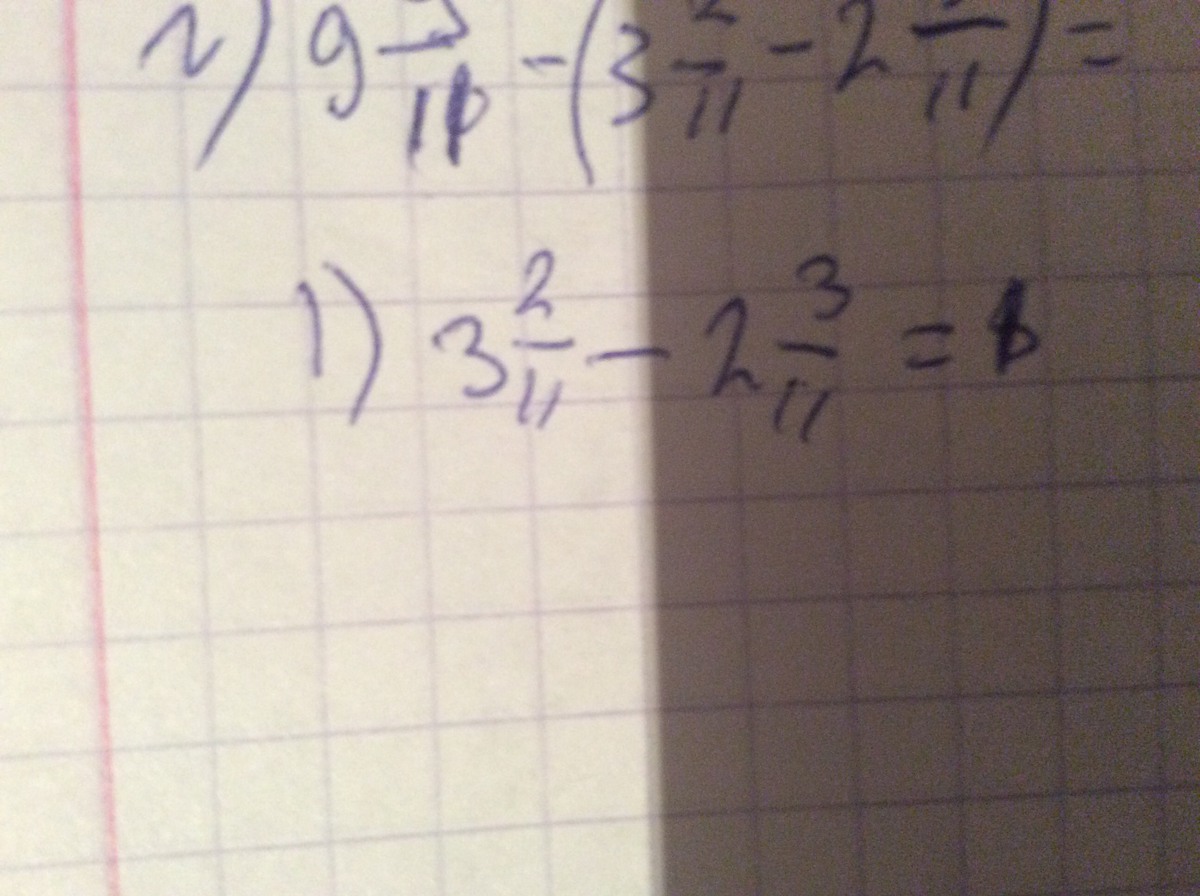 г) 9 /11 - (3 2/11 - 2 /11) =
1) 3 2/11 - 2 3/11 =